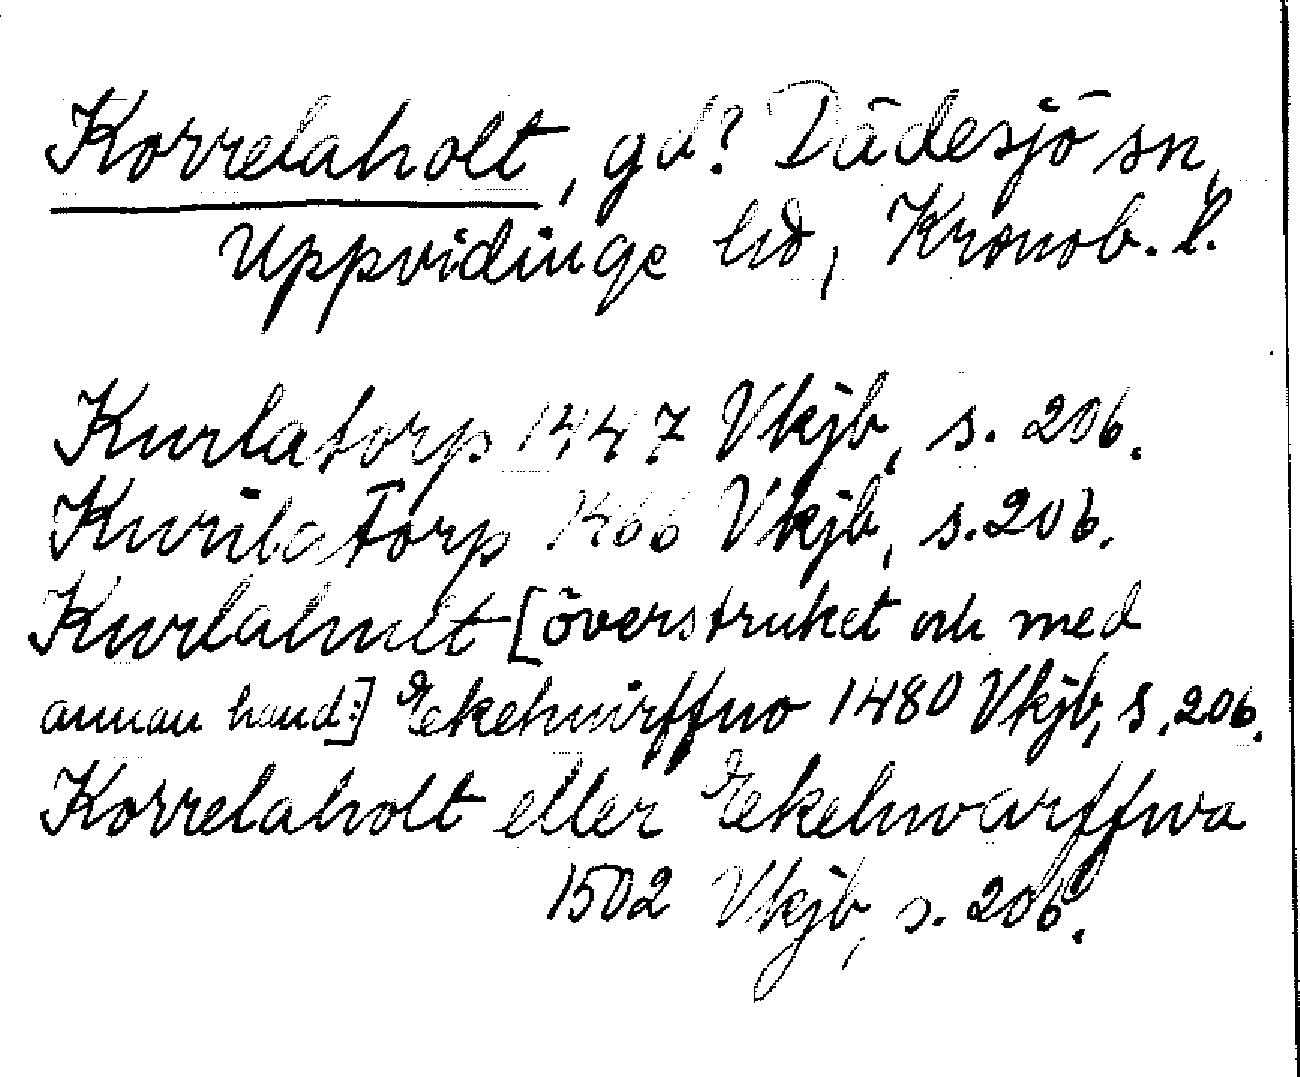 Korrelaholt, gd? Dädesjö sn,
Uppvidinge hd, Kronob. l.
Kurlatorp 1447 Vkjb, s. 206.
Kurila torp 1466 Vkjb, s. 206.
Kurlahult [överstruket och med
annan hand:] Ekehwirffwo 1480 Vkjb, s. 206.
Korrelaholt eller Ekehwarffwa
1502 Vkjb, s. 206.